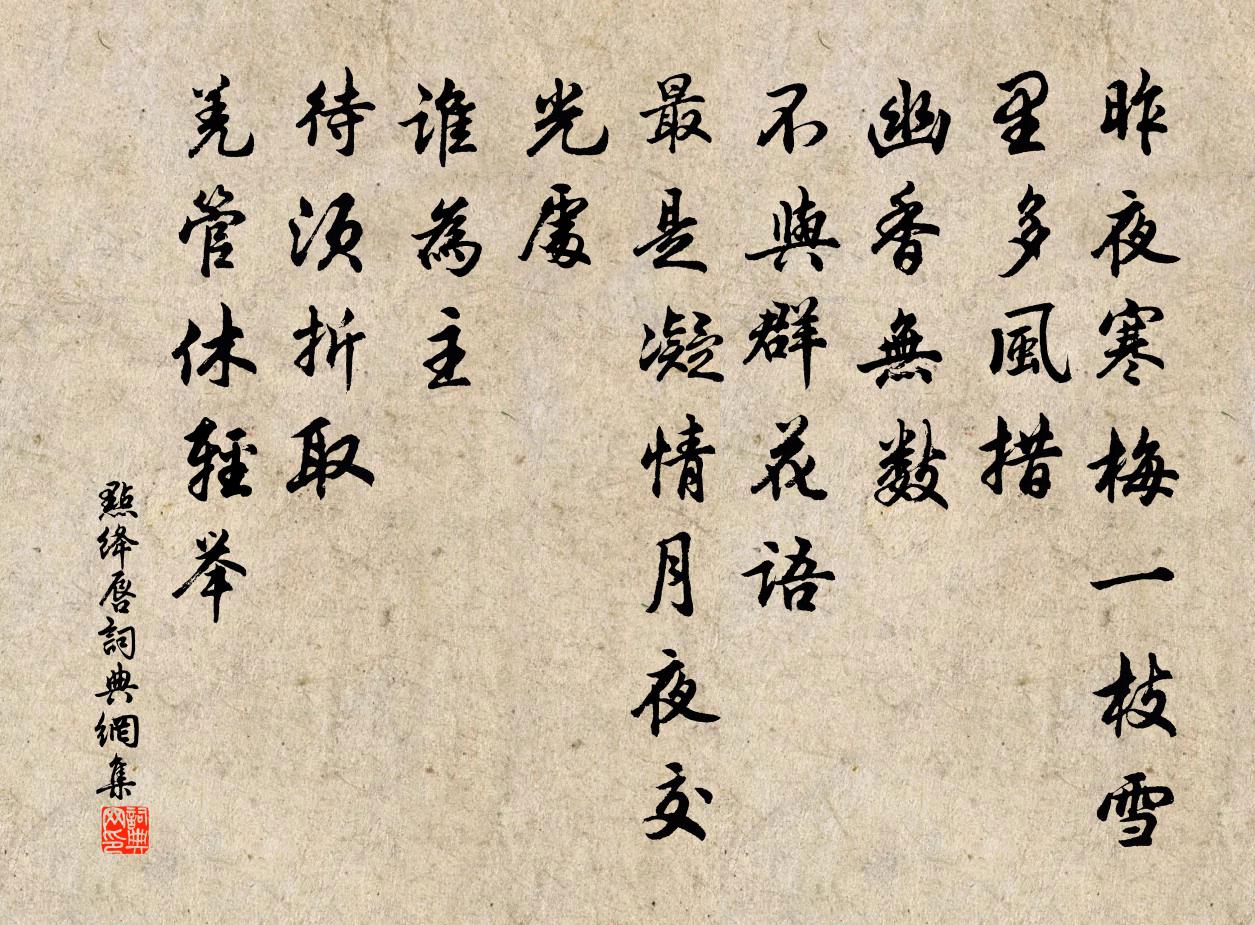 昨夜寒梅一枝雪
里多風措
幽香無數
不與群花語
最是凝情月夜交
光處
誰為主
待須折取
羌管休輕举
點絳唇詞典網集
詞典网印